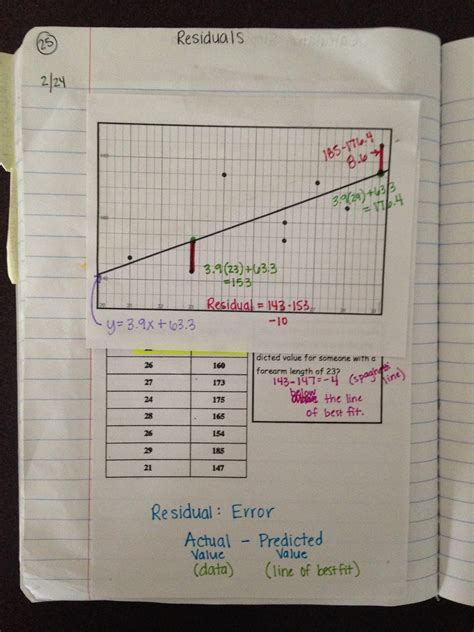 25
Residuals
2/24
185-176.4
8.6
3.9(29)+63.3
=176.4
3.9(23)+63.3
=153
Residual = 143-153
-10
y=3.9x+63.3
dicted value for someone with a
forearm length of 23?
143-147=-4 (spaghetti line)
below
the line
of best fit.
26 160
27 173
24 175
28 165
26 154
29 185
21 147
Residual: Error
Actual - Predicted
Value Value
(data) (line of best fit)